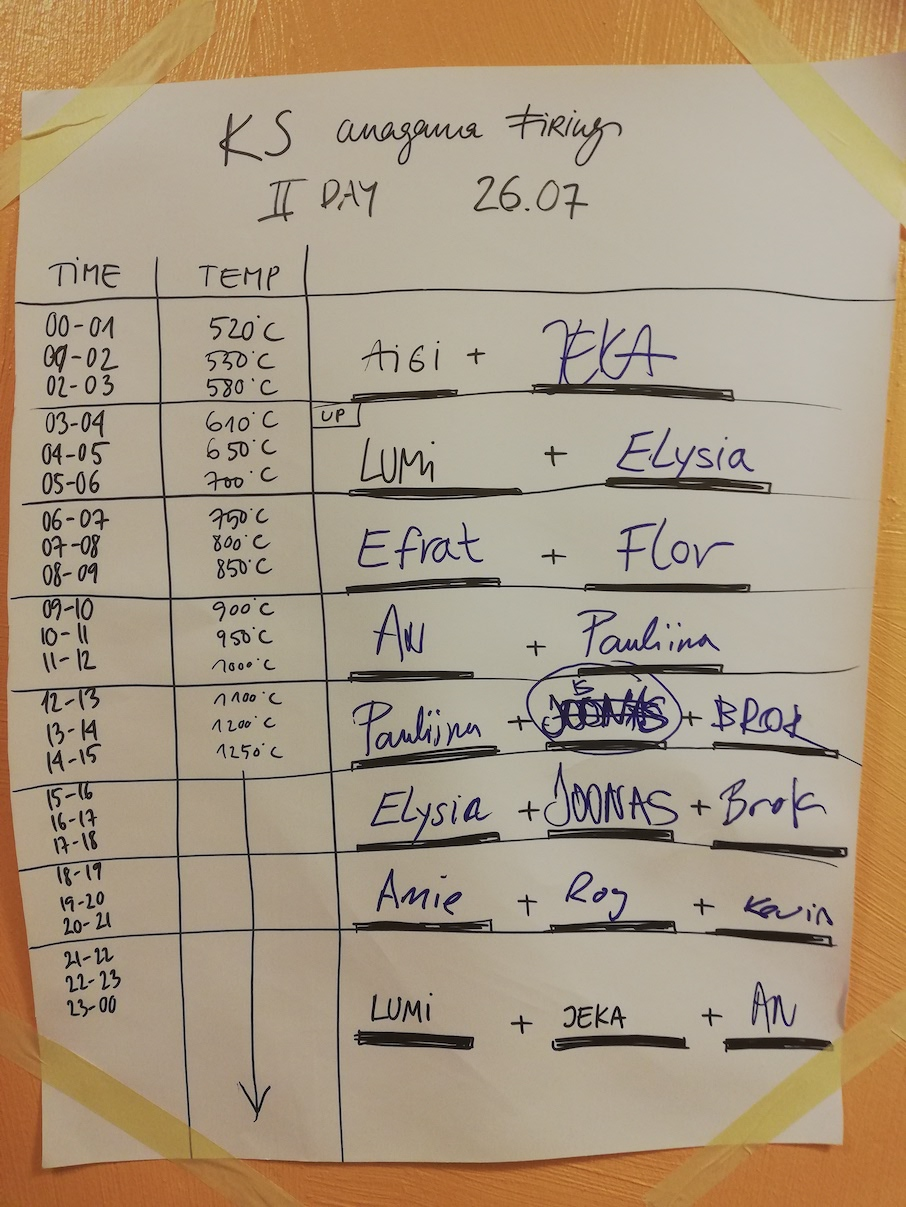 KS anagama FiRing
II DAY 26.07
TiME TEMP
00-01 520°C
01-02 530°C
02-03 580°C
AiGi + JEKA
UP
03-04 610°C
04-05 650°C
05-06 700°C
LUMi + ELysia
06-07 750°C
07-08 800°C
08-09 850°C
Efrat + Flor
09-10 900°C
10-11 950°C
11-12 1000°C
AN + Pauliina
12-13 1100°C
13-14 1200°C
14-15 1250°C
Pauliina + JOONAS +
15-16
16-17
17-18
ELysia + JOONAS + Brok
18-19
19-20
20-21
Amie + Roy + Kevin
21-22
22-23
23-00
LUMi + JEKA + AN